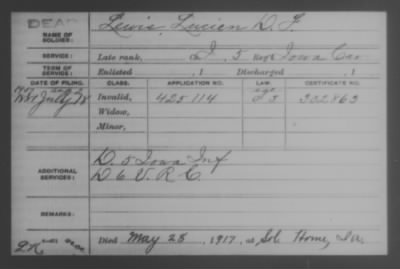 DEAD
NAME OF SOLDIER: Lewis, Lucien D. F.
SERVICE: Late rank, I, 5 Reg't Iowa Cav
TERM OF SERVICE: Enlisted , 1 Discharged , 1
DATE OF FILING. CLASS. APPLICATION NO. LAW. CERTIFICATE NO.
July 18 Invalid, 425114 302863
Widow,
Minor,
ADDITIONAL SERVICES: D. 5 Iowa Inf
D 6 V. R. C.
REMARKS:
Died May 25, 1917, at Sol. Home, Ia.